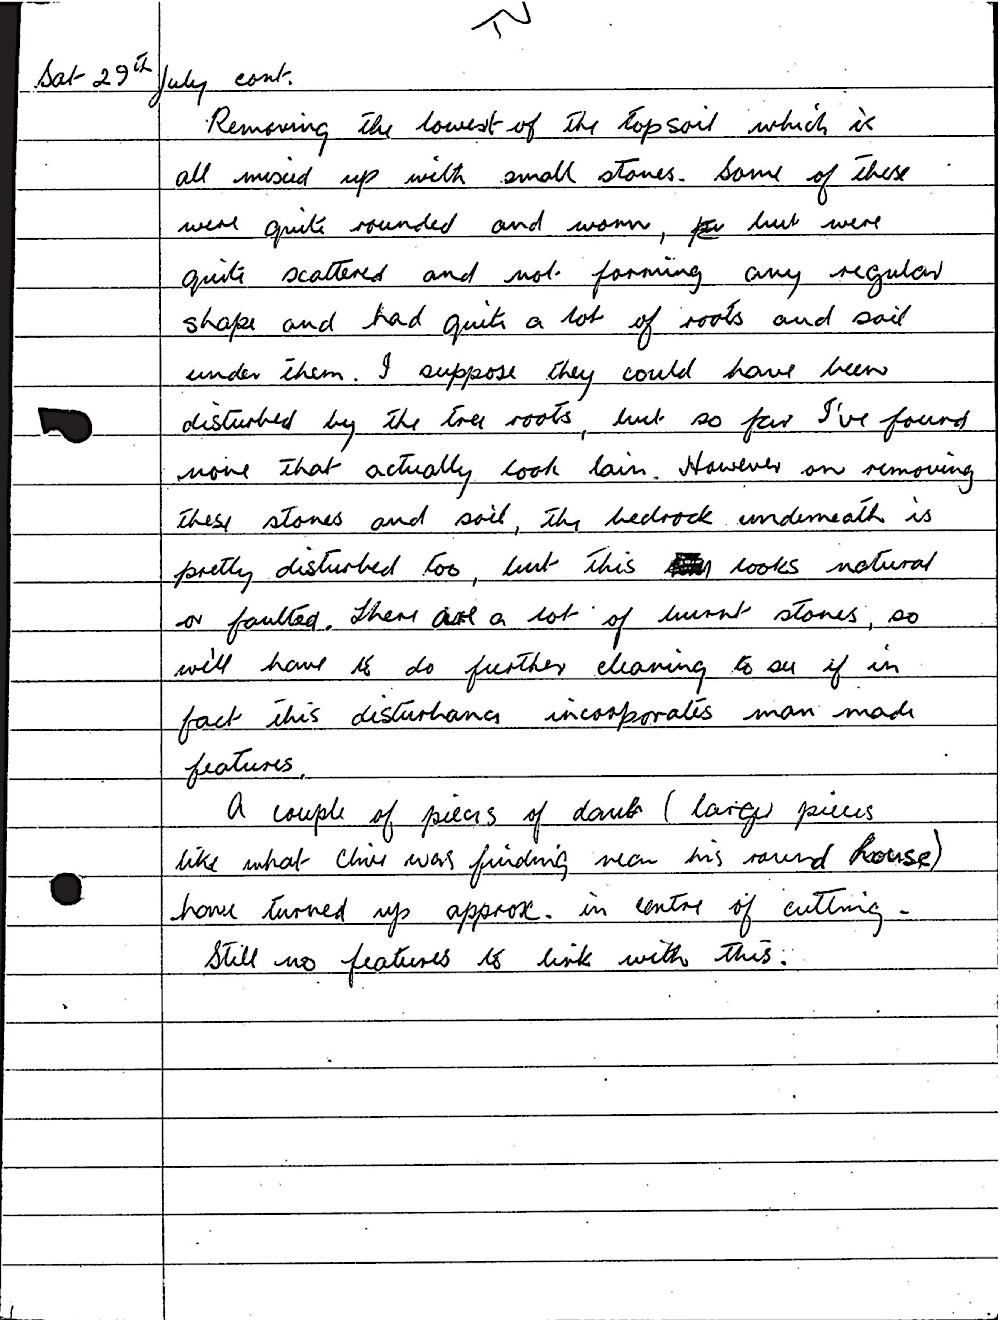 Sat 29th July cont.
Removing the lowest of the topsoil which is
all mixed up with small stones. Some of these
were quite rounded and worn, but were
quite scattered and not forming any regular
shape and had quite a lot of roots and soil
under them. I suppose they could have been
disturbed by the tree roots, but so far I've found
none that actually look lain. However on removing
these stones and soil, the bedrock underneath is
pretty disturbed too, but this looks natural
or faulted. There are a lot of burnt stones, so
will have to do further cleaning to see if in
fact this disturbance incorporates man made
features.
A couple of pieces of daub (large pieces
like what Clive was finding near his round house)
have turned up approx. in centre of cutting.
Still no features to link with this.